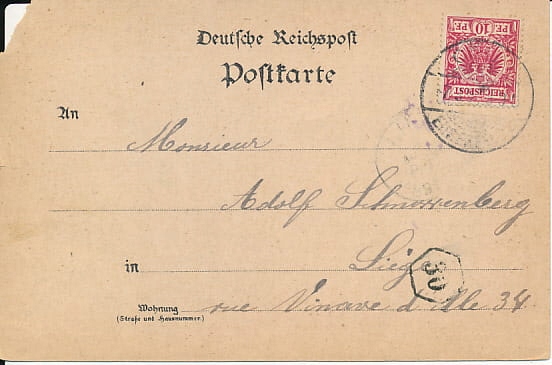 Deutsche Reichspost
Postkarte
10
PF. 10 PF.
REICHSPOST
An
Monsieur
Adolf
in
30
Wohnung
rue Vinave d'Ile 34
(Straße und Hausnummer.)